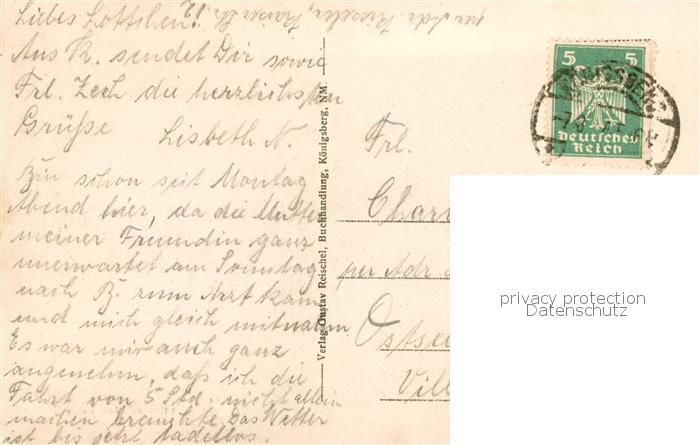 Liebes Lottchen!
Aus K. sendet Dir sowie
Frl. Zech die herzlichsten
Grüße Lisbeth N.
Bin schon seit Montag
Abend hier, da die Mutter
meiner Freundin ganz
unerwartet am Sonntag
nach B. zum Arzt kam
und mich gleich mitnahm
Es war mir auch ganz
angenehm, daß ich die
Fahrt von 5 Std. nicht allein
machen brauchte. Das Wetter
ist bis jetzt tadellos.
per Adr.
Verlag Gustav Reischel, Buchhandlung, Königsberg, NM.
5 5
Deutsches
Reich
Frl.
Char
per Adr
Ostsee
Vill
privacy protection
Datenschutz